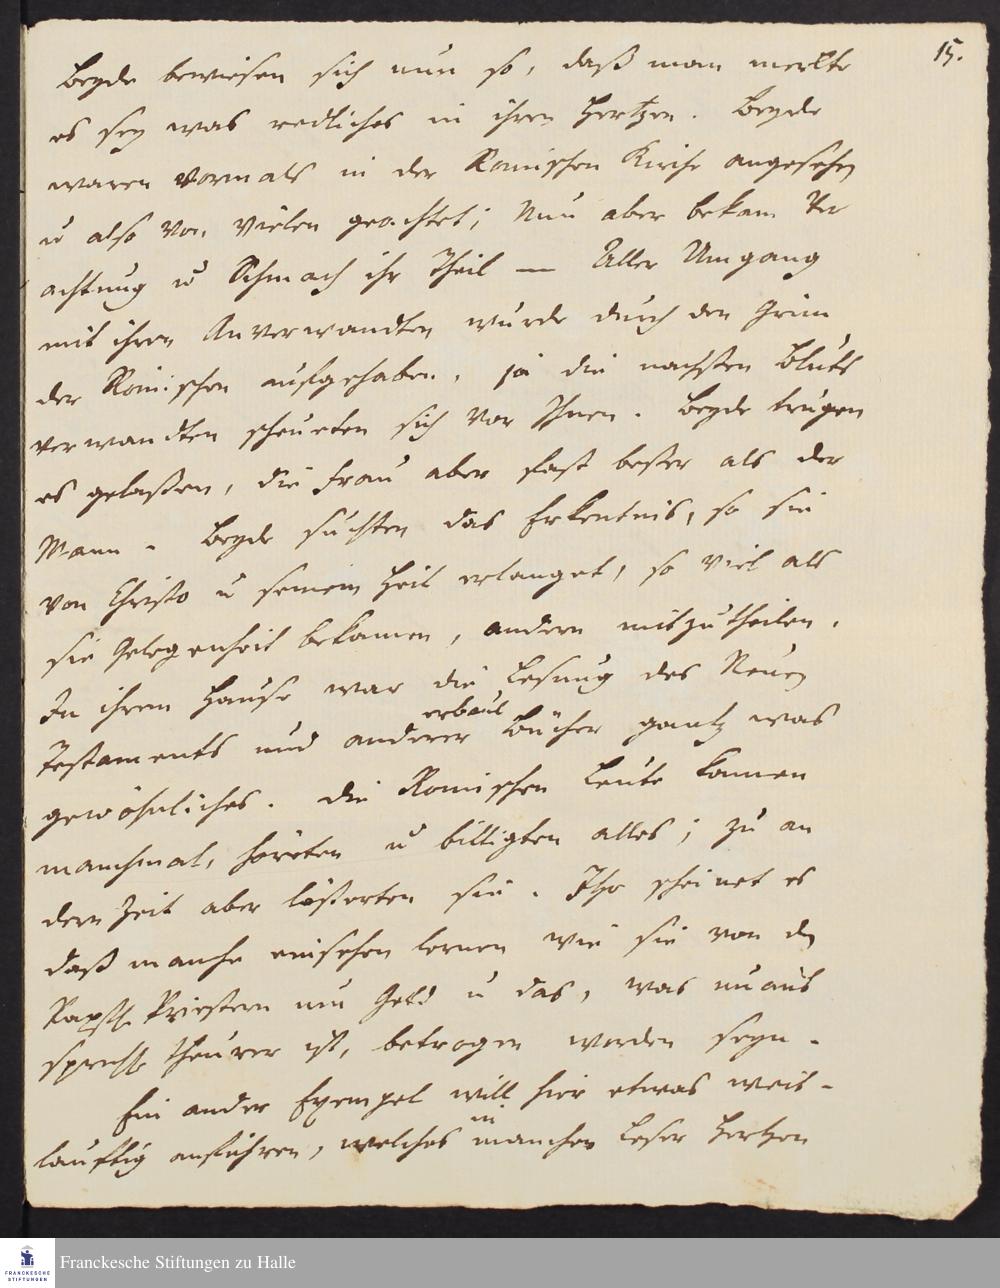 15.
Beyde bewiesen sich nun so, daß man merkte
es sey was redliches in ihren Hertzen. Beyde
waren vormals in der Romischen Kirche angesehen
u also von vielen geachtet; Nun aber bekam Ver
achtung u Schmach ihr Theil — Aller Umgang
mit ihren Anverwandten wurde durch den Grim
der Römischen aufgehaben, ja die nachsten Bluts
verwandten scheueten sich vor Ihnen. Beyde trugen
es gelaßen, die Frau aber fast beßer als der
Mann. Beyde suchten das Erkentnis, so sie
von Christo u seinem Heil erlanget, so viel als
sie Gelegenheit bekamen, andern mitzutheilen.
In ihrem Hause war die Lesung des Neuen
erbaul
Testaments und anderer Bücher gantz was
gewöhnliches. Die Romischen Leute kamen
manchmal, höreten u billigten alles; zu an
dern Zeit aber lästerten sie. Itzo scheinet es
daß manche einsehen lernen wie sie von den
Papstl. Priestern um Geld u das, was unaus
sprechl. theurer ist, betrogen worden seyn.
Ein ander Exempel will hier etwas weit-
in
lauftig anführen, welches manchen Leser Hertzen
FRANCKESCHE
STIFTUNGEN
Franckesche Stiftungen zu Halle